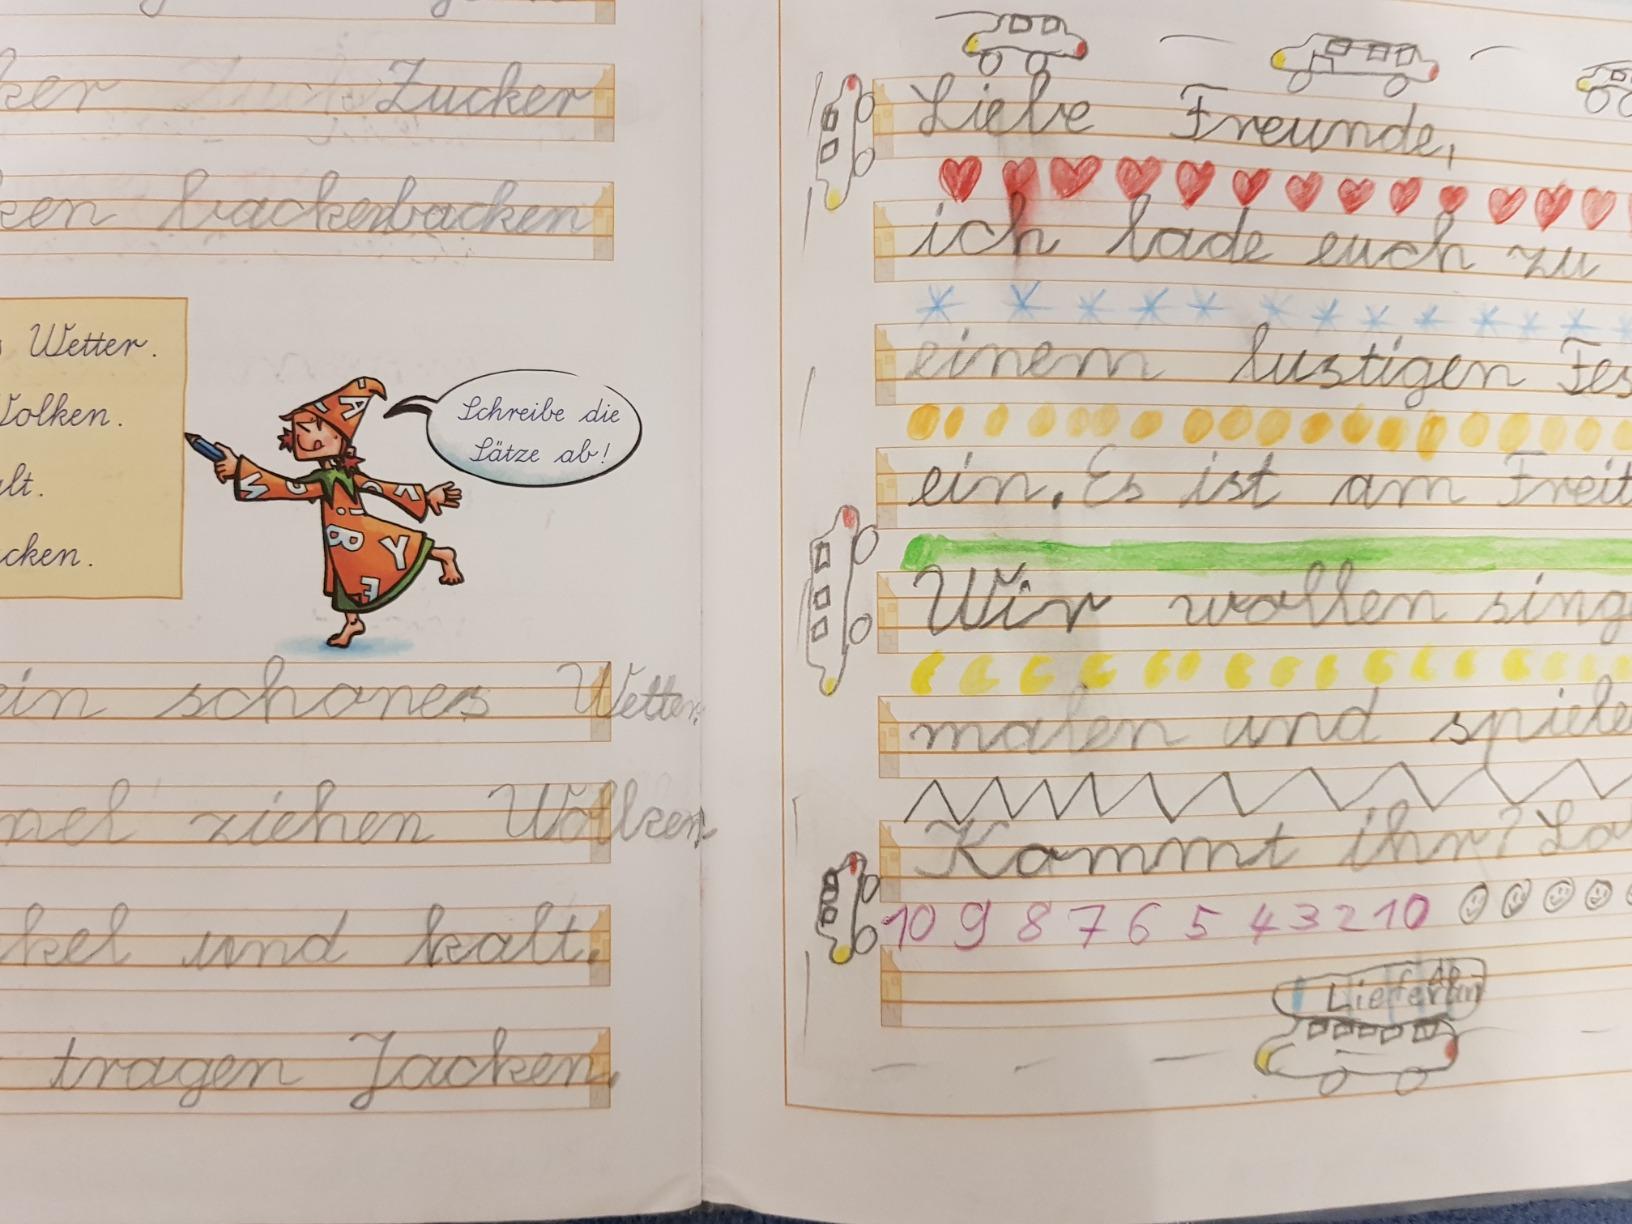 Zucker
backen backen
Wetter.
Wolken.
Schreibe die
Sätze ab!
ein schones Wetter.
ziehen Wolken
und kalt.
tragen Jacken.
Liebe Freunde,
ich lade euch zu
einem lustigen Fes
ein. Es ist am Freit
Wir wollen singe
malen und spiele
Kommt ihr?
10 9 8 7 6 5 4 3 2 10